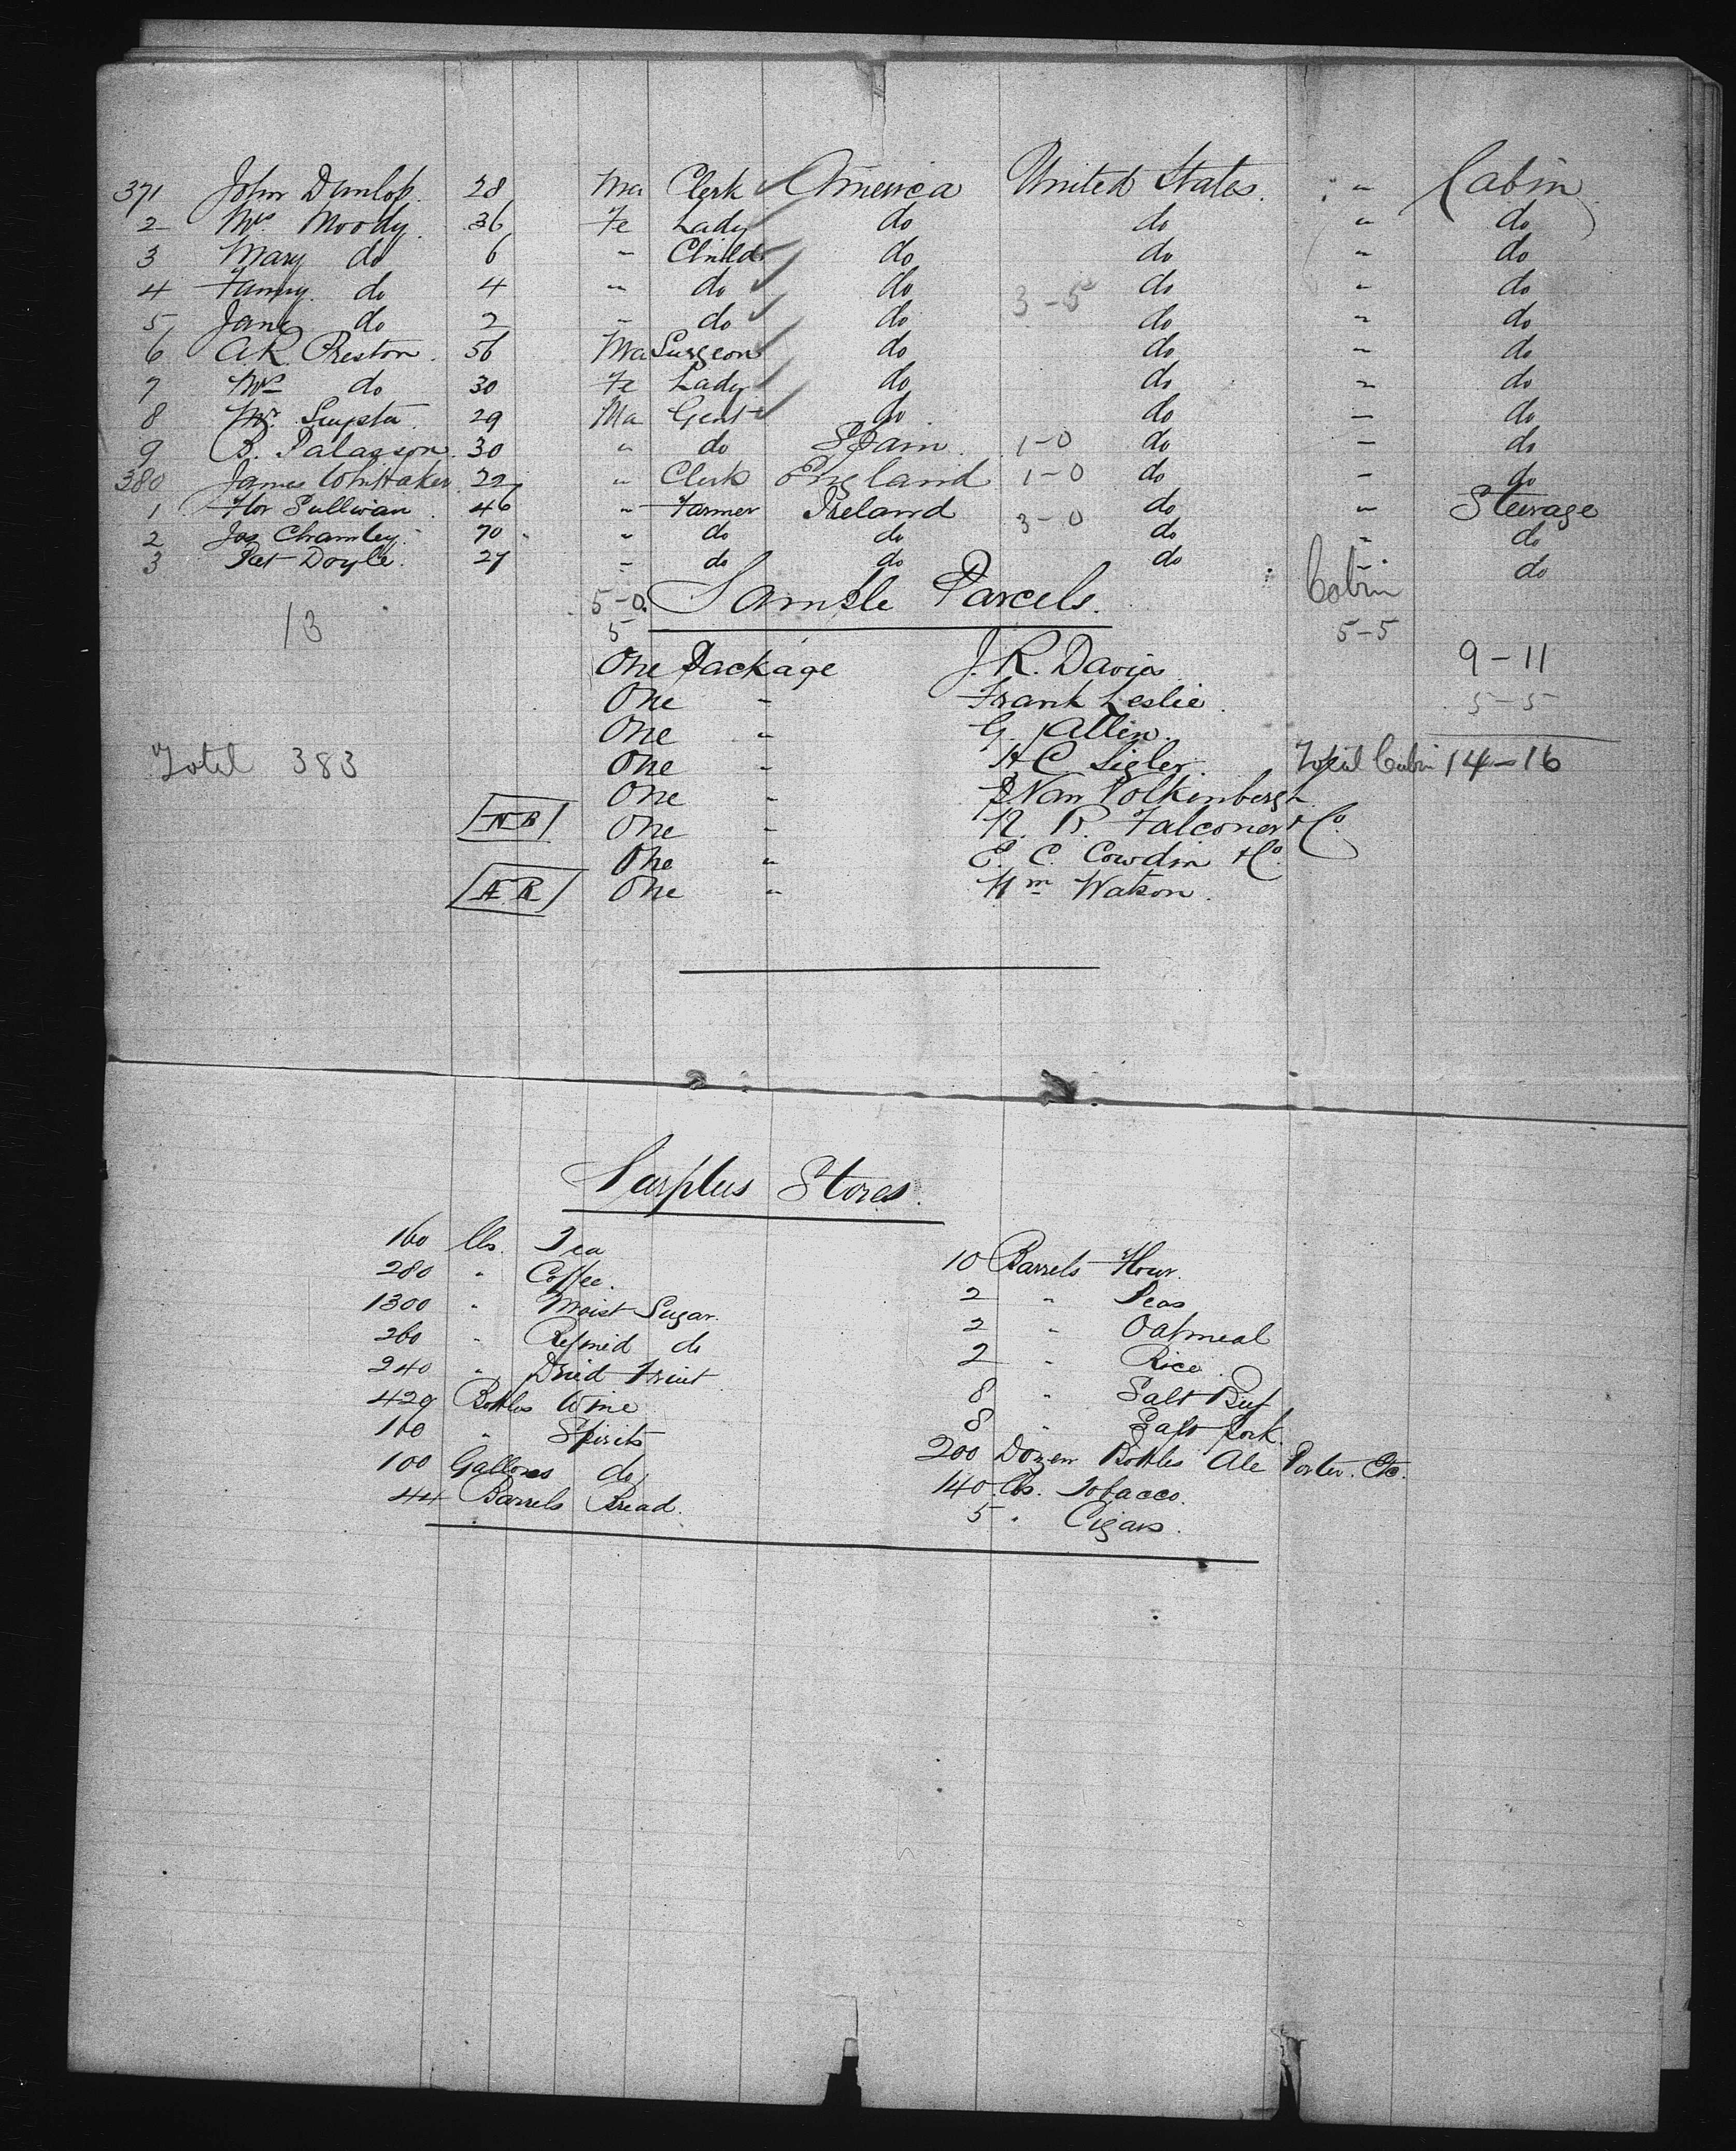 371 John Dunlop. 28 Ma Clerk America United States. " Cabin
2 Mrs. Moody. 36 Fe Lady do do " do
3 Mary do 6 " Child do do " do
4 Fanny do 4 " do do 3-5 do " do
5 Jane do 2 " do do do " do
6 A.R. Preston. 56 Ma Surgeon do do " do
7 Mrs do 30 Fe Lady do do " do
8 Mr. 29 Ma Gent do do " do
9 B. Palasson. 30 " do Spain. 1-0 do " do
380 James Whittaker. 22 " Clerk England 1-0 do " do
1 Flor Sullivan. 46 " Farmer Ireland 3-0 do " Steerage
2 Jas Chamley. 70 " do do do " do
3 Pat Doyle. 27 " do do do " do
13 5-0 Sample Parcels. Cabin
5 5-5
One Package J. R. Davies 9-11
One " Frank Leslie. 5-5
One " G. Allen.
Total 383 One " H C Sigler. Total Cabin 14-16
One " P Van Volkinbergh
NB One " N. B. Falconer & Co.
One " E. C. Cowdin & Co.
A R One " Wm Watson.
Surplus Stores.
160 lbs. Tea
10 Barrels Flour.
280 " Coffee.
2 " Peas
1300 " Moist Sugar.
2 " Oatmeal
260 " Refined do
2 " Rice
240 " Dried Fruit
8 " Salt Beef
429 Bottles Wine
8 " Salt Pork.
160 " Spirits
200 Dozen Bottles Ale Porter. Etc.
100 Gallons do
140 lbs. Tobacco.
44 Barrels Bread.
5 " Cigars.